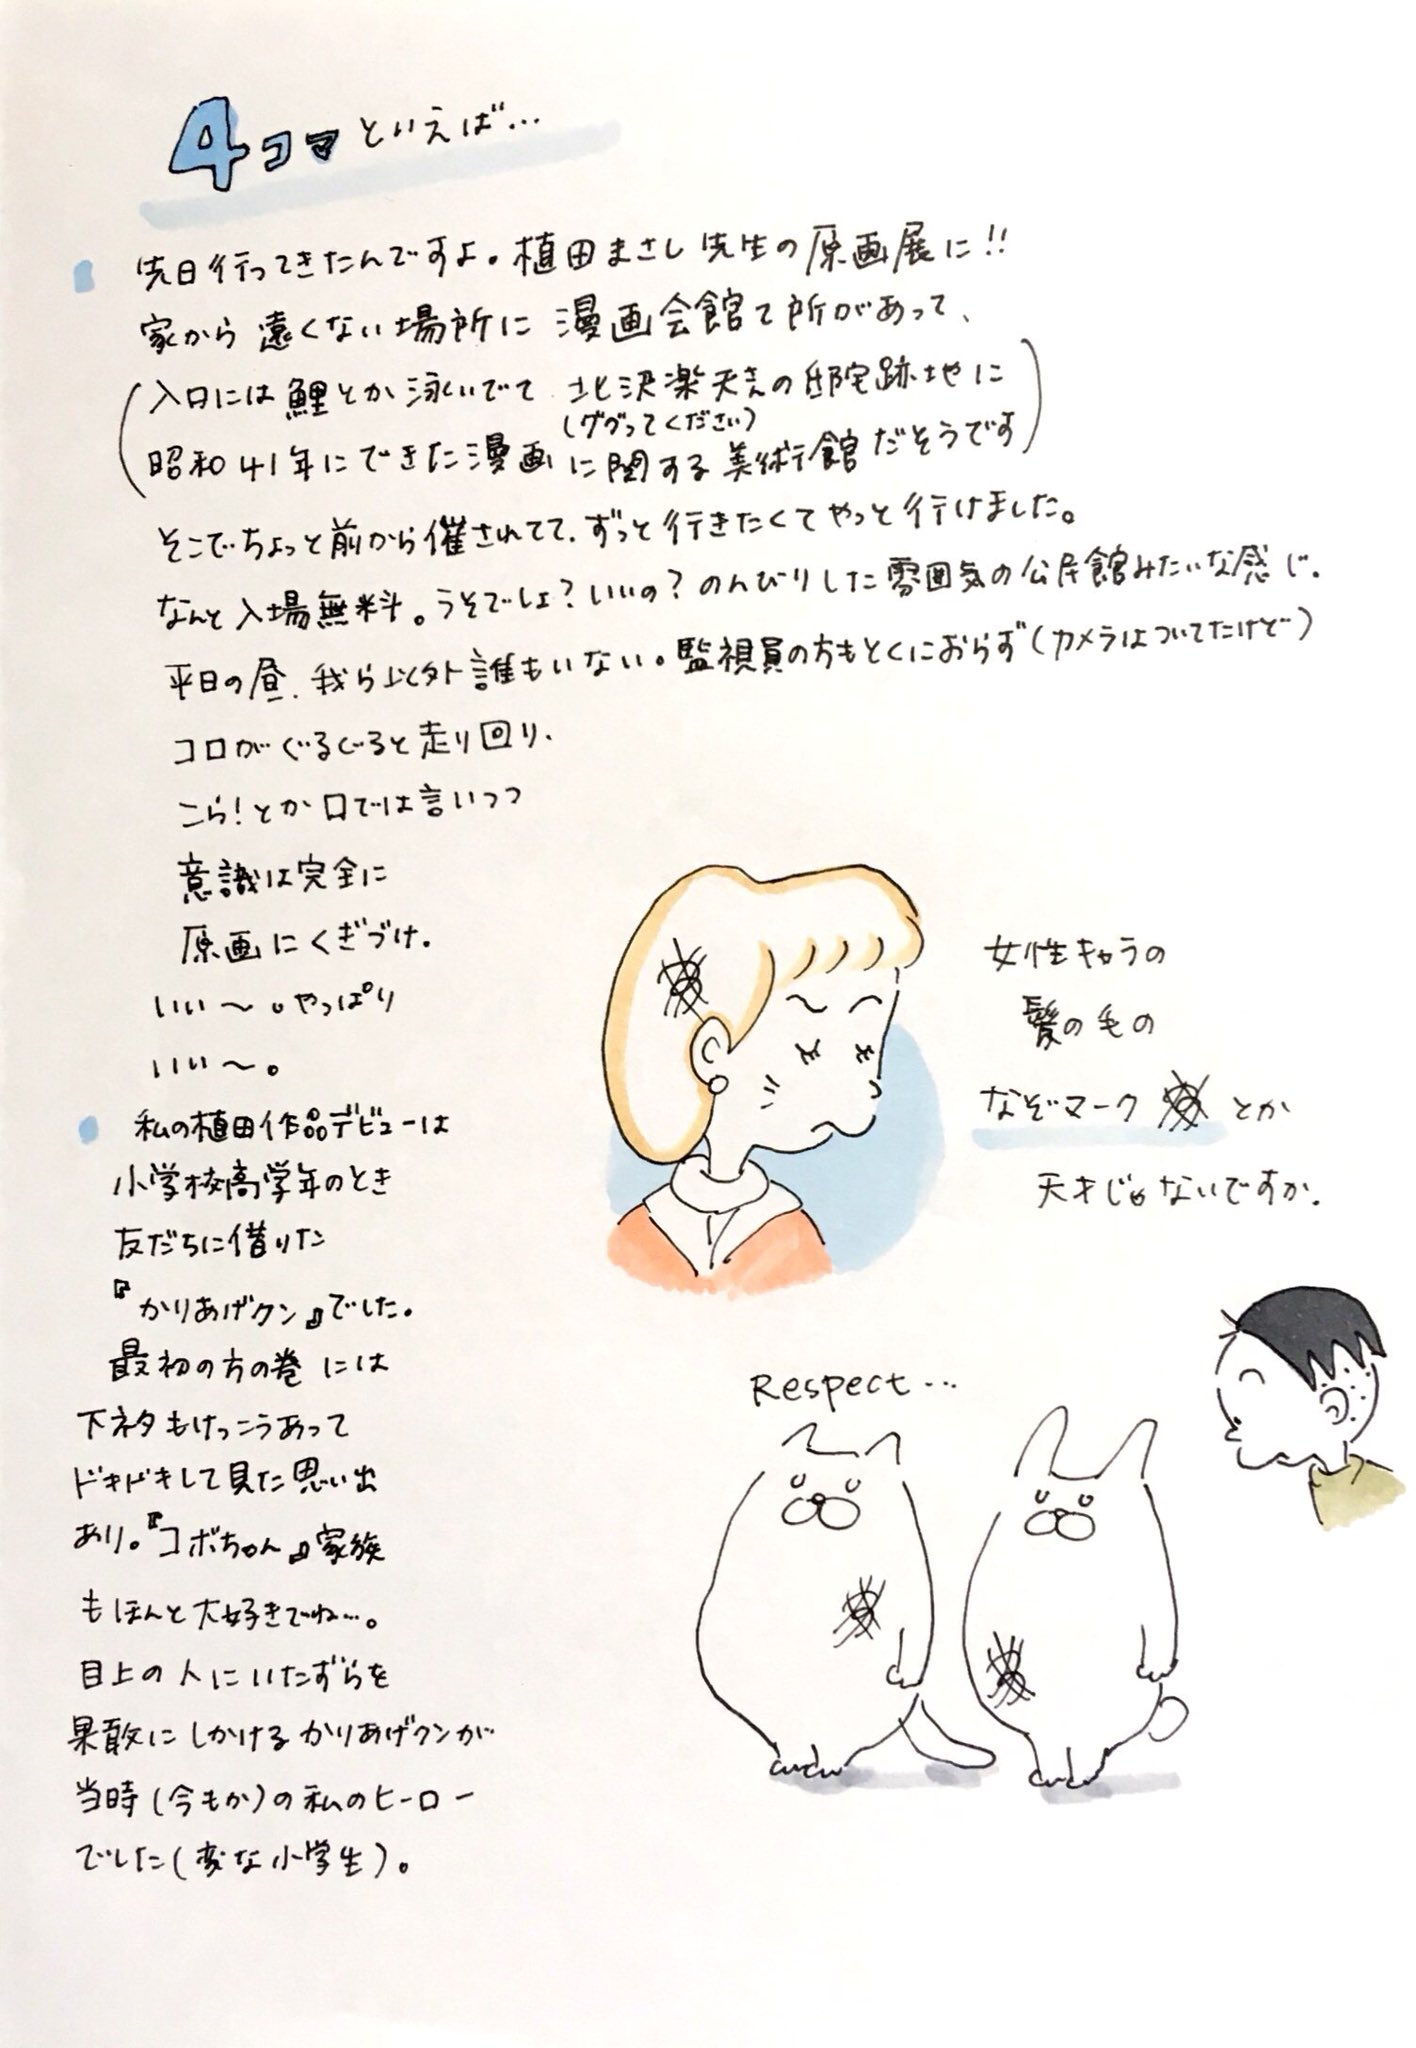 4コマといえば…
先日行ってきたんですよ。植田まさし先生の原画展に!!
家から遠くない場所に漫画会館て所があって、
(入口には鯉とか泳いでて 北沢楽天さんの邸宅跡地に
(ググってください)
昭和41年にできた漫画に関する美術館だそうです)
そこでちょっと前から催されてて、ずっと行きたくてやっと行けました。
なんと入場無料。うそでしょ?いいの?のんびりした雰囲気の公民館みたいな感じ.
平日の昼、我ら以外誰もいない。監視員の方もとくにおらず(カメラはついてたけど)
コロがぐるぐると走り回り、
こら!とか口では言いつつ
意識は完全に
原画にくぎづけ.
いい〜。やっぱり
いい〜。
私の植田作品デビューは
小学校高学年のとき
友だちに借りた
『かりあげクン』でした。
最初の方の巻には
下ネタもけっこうあって
ドキドキして見た思い出
あり。『コボちゃん』家族
もほんと大好きでね…。
目上の人にいたずらを
果敢にしかけるかりあげクンが
当時(今もか)の私のヒーロー
でした(変な小学生)。
女性キャラの
髪の毛の
なぞマーク とか
天才じゃないですか.
Respect…